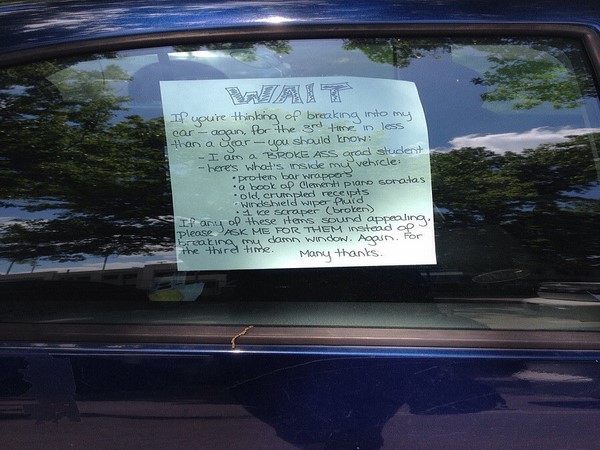 WAIT
If you're thinking of breaking into my
car — again, for the 3rd time in less
than a year — you should know:
- I am a BROKE ASS grad student
- here's what's inside my vehicle:
• protein bar wrappers
• a book of Clementi piano sonatas
• old, crumpled receipts
• windshield wiper fluid
• 1 ice scraper (broken)
If any of these items sound appealing,
please ASK ME FOR THEM instead of
breaking my damn window. Again. For
the third time. Many thanks.